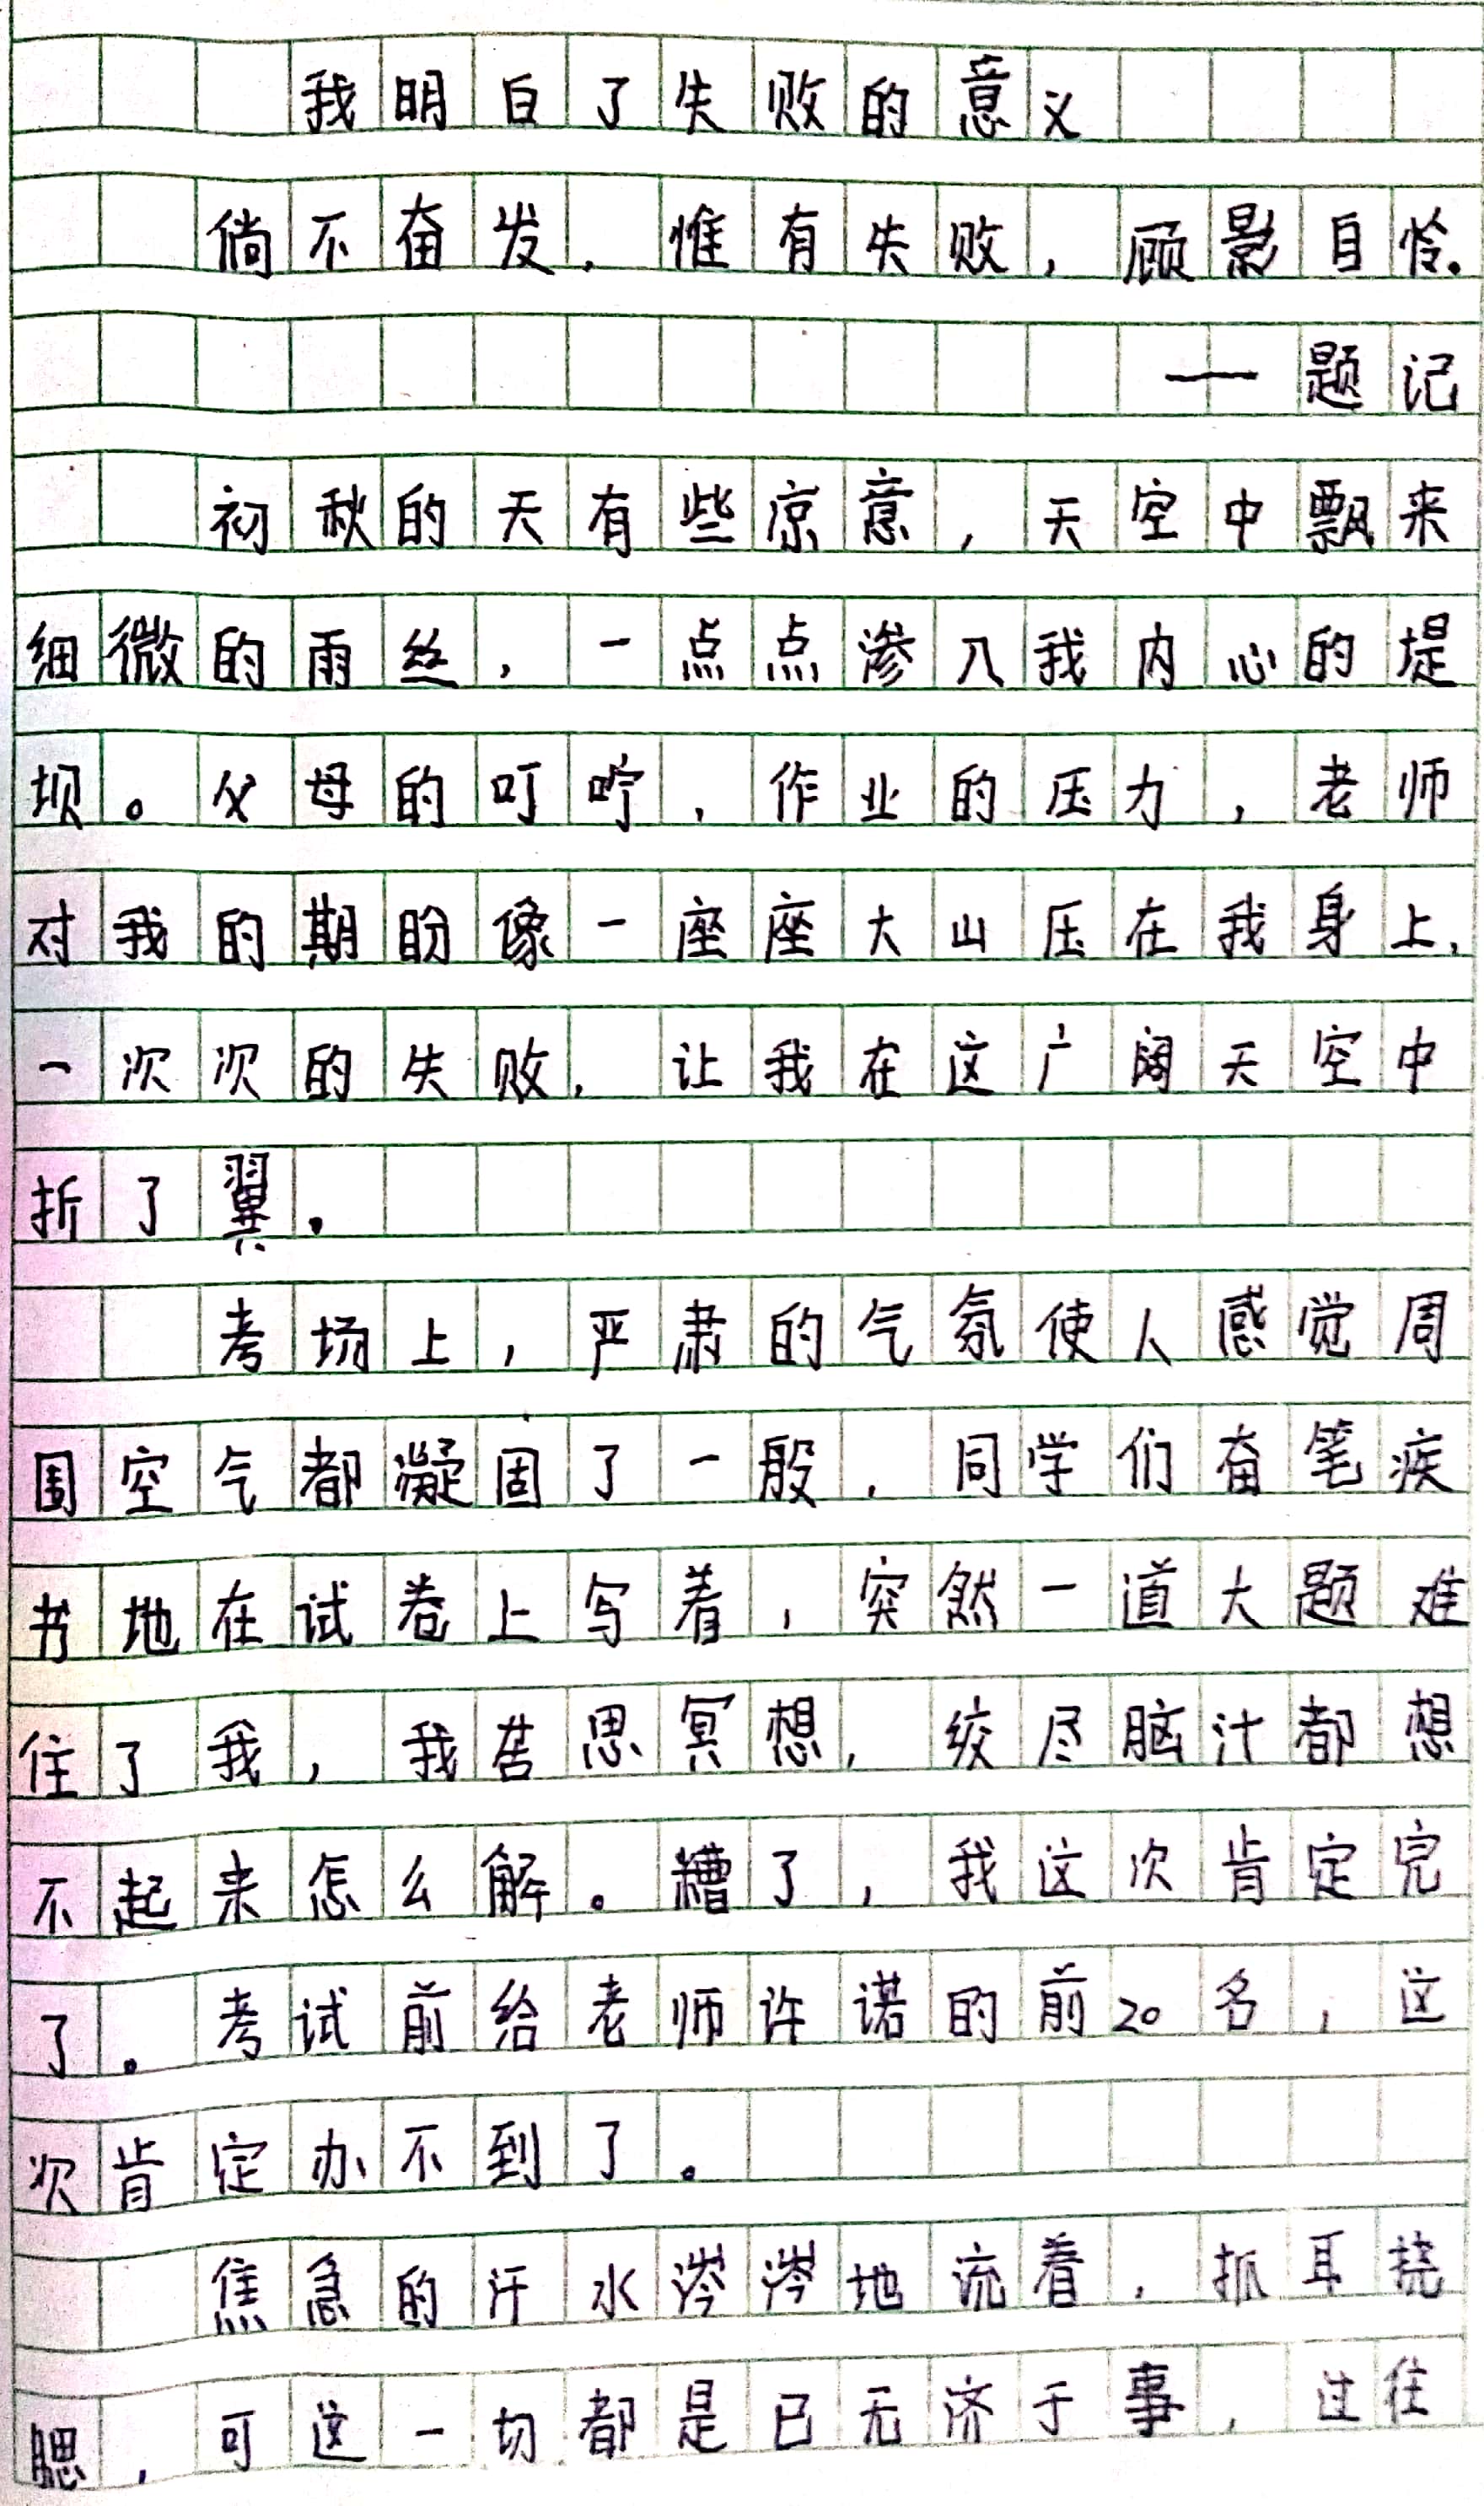 我明白了失败的意义
倘不奋发，惟有失败，顾影自怜。
——题记
初秋的天有些凉意，天空中飘来
细微的雨丝，一点点渗入我内心的堤
坝。父母的叮咛，作业的压力，老师
对我的期盼像一座座大山压在我身上，
一次次的失败，让我在这广阔天空中
折了翼。
考场上，严肃的气氛使人感觉周
围空气都凝固了一般，同学们奋笔疾
书地在试卷上写着，突然一道大题难
住了我，我苦思冥想，绞尽脑汁都想
不起来怎么解。糟了，我这次肯定完
了。考试前给老师许诺的前20名，这
次肯定办不到了。
焦急的汗水涔涔地流着，抓耳挠
腮，可这一切都是已无济于事，过往